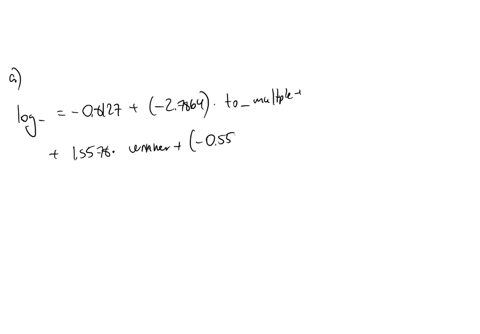 a)
log_ = -0.8127 + (-2.7864). to_multiple +
+ 1.5576. winner + (-0.55